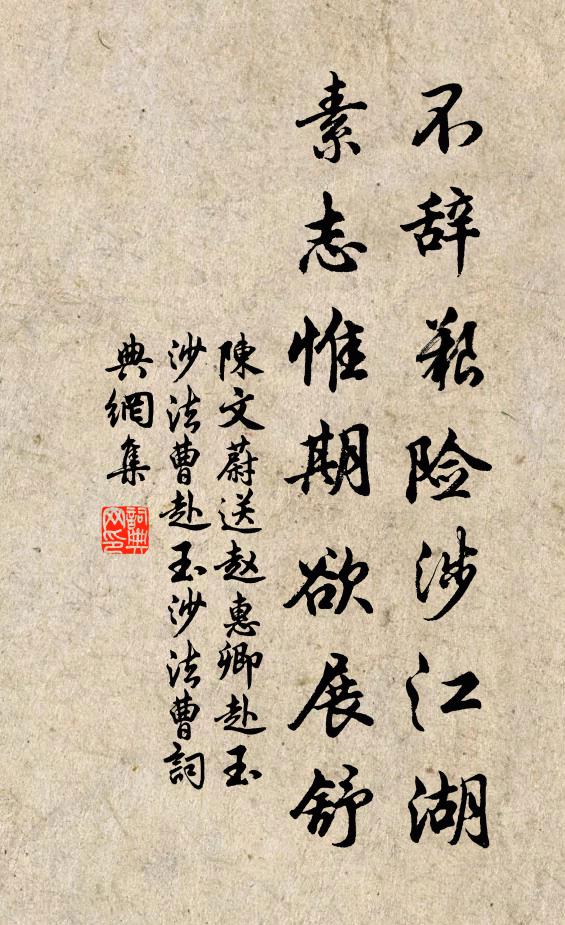 不辞艰险涉江湖
素志惟期欲展舒
陳文蔚送赵惠卿赴玉
沙法曹赴玉沙法曹詞
典網集
詞典網印